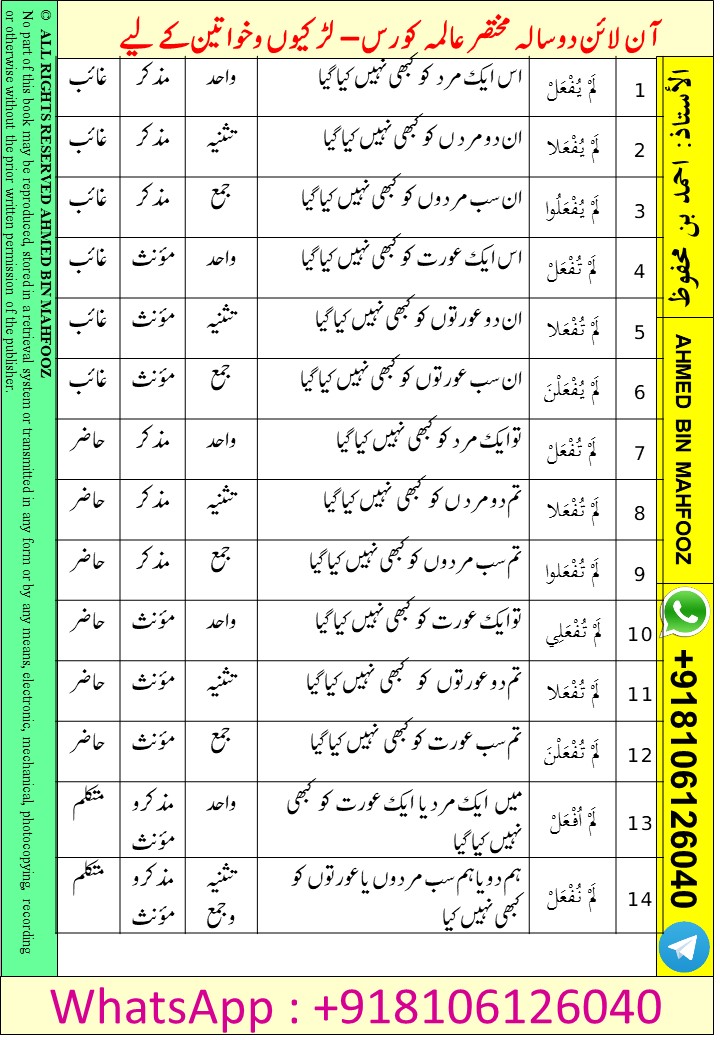 آن لائن دو سالہ مختصر عالمہ کورس – لڑکیوں و خواتین کے لیے
1 لَمْ يُفْعَلْ اس ایک مرد کو کبھی نہیں کیا گیا واحد مذکر غائب
2 لَمْ يُفْعَلا ان دو مردں کو کبھی نہیں کیا گیا تثنیہ مذکر غائب
3 لَمْ يُفْعَلُوا ان سب مردوں کو کبھی نہیں کیا گیا جمع مذکر غائب
4 لَمْ تُفْعَلْ اس ایک عورت کو کبھی نہیں کیا گیا واحد مؤنث غائب
5 لَمْ تُفْعَلا ان دو عورتوں کو کبھی نہیں کیا گیا تثنیہ مؤنث غائب
6 لَمْ يُفْعَلْنَ ان سب عورتوں کو کبھی نہیں کیا گیا جمع مؤنث غائب
7 لَمْ تُفْعَلْ تو ایک مرد کو کبھی نہیں کیا گیا واحد مذکر حاضر
8 لَمْ تُفْعَلا تم دو مردں کو کبھی نہیں کیا گیا تثنیہ مذکر حاضر
9 لَمْ تُفْعَلوا تم سب مردوں کو کبھی نہیں کیا گیا جمع مذکر حاضر
10 لَمْ تُفْعَلِي تو ایک عورت کو کبھی نہیں کیا گیا واحد مؤنث حاضر
11 لَمْ تُفْعَلا تم دو عورتوں کو کبھی نہیں کیا گیا تثنیہ مؤنث حاضر
12 لَمْ تُفْعَلْنَ تم سب عورت کو کبھی نہیں کیا گیا جمع مؤنث حاضر
13 لَمْ اُفْعَلْ میں ایک مرد یا ایک عورت کو کبھی واحد مذکر و متکلم
نہیں کیا گیا مؤنث
14 لَمْ نُفْعَلْ ہم دو یا ہم سب مردوں یا عورتوں کو تثنیہ مذکر و متکلم
کبھی نہیں کیا و جمع مؤنث
الأستاذ: احمد بن محفوظ
AHMED BIN MAHFOOZ
+918106126040
© ALL RIGHTS RESERVED AHMED BIN MAHFOOZ
No part of this book may be reproduced, stored in a retrieval system or transmitted in any form or by any means, electronic, mechanical, photocopying, recording
or otherwise without the prior written permission of the publisher.
WhatsApp : +918106126040